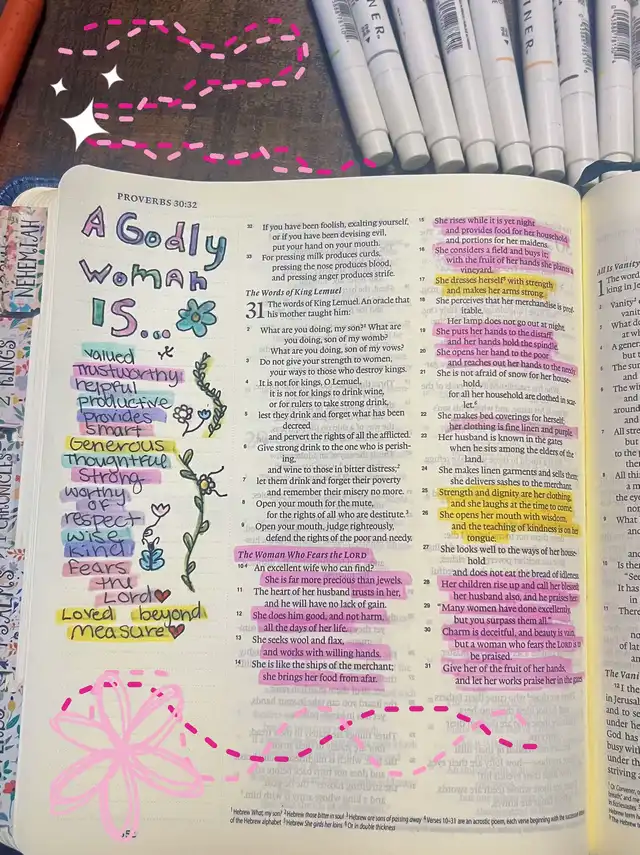 PROVERBS 30:32
A Godly
Woman
IS...
valued
trustworthy
helpful
productive
provides
smart
Generous
Thoughtful
Strong
worthy
of
respect
wise
kind
fears
the
Lord
Loved beyond
measure
32 If you have been foolish, exalting yourself,
or if you have been devising evil,
put your hand on your mouth.
33 For pressing milk produces curds,
pressing the nose produces blood,
and pressing anger produces strife.
The Words of King Lemuel
31 The words of King Lemuel. An oracle that
his mother taught him:
2 What are you doing, my son?¹ What are
you doing, son of my womb?
What are you doing, son of my vows?
3 Do not give your strength to women,
your ways to those who destroy kings.
4 It is not for kings, O Lemuel,
it is not for kings to drink wine,
or for rulers to take strong drink,
5 lest they drink and forget what has been
decreed
and pervert the rights of all the afflicted.
6 Give strong drink to the one who is perish-
ing,
and wine to those in bitter distress;²
7 let them drink and forget their poverty
and remember their misery no more.
8 Open your mouth for the mute,
for the rights of all who are destitute.³
9 Open your mouth, judge righteously,
defend the rights of the poor and needy.
The Woman Who Fears the LORD
10⁴ An excellent wife who can find?
She is far more precious than jewels.
11 The heart of her husband trusts in her,
and he will have no lack of gain.
12 She does him good, and not harm,
all the days of her life.
13 She seeks wool and flax,
and works with willing hands.
14 She is like the ships of the merchant;
she brings her food from afar.
15 She rises while it is yet night
and provides food for her household
and portions for her maidens.
16 She considers a field and buys it;
with the fruit of her hands she plants a
vineyard.
17 She dresses herself⁵ with strength
and makes her arms strong.
18 She perceives that her merchandise is prof-
itable.
Her lamp does not go out at night.
19 She puts her hands to the distaff,
and her hands hold the spindle.
20 She opens her hand to the poor
and reaches out her hands to the needy.
21 She is not afraid of snow for her house-
hold,
for all her household are clothed in scar-
let.⁶
22 She makes bed coverings for herself;
her clothing is fine linen and purple.
23 Her husband is known in the gates
when he sits among the elders of the
land.
24 She makes linen garments and sells them;
she delivers sashes to the merchant.
25 Strength and dignity are her clothing,
and she laughs at the time to come.
26 She opens her mouth with wisdom,
and the teaching of kindness is on her
tongue.
27 She looks well to the ways of her house-
hold
and does not eat the bread of idleness.
28 Her children rise up and call her blessed;
her husband also, and he praises her:
29 "Many women have done excellently,
but you surpass them all."
30 Charm is deceitful, and beauty is vain,
but a woman who fears the LORD is to
be praised.
31 Give her of the fruit of her hands,
and let her works praise her in the gates.
¹ Hebrew What, my son? ² Hebrew those bitter in soul ³ Hebrew are sons of passing away ⁴ Verses 10–31 are an acrostic poem, each verse beginning with the successive
of the Hebrew alphabet ⁵ Hebrew She girds her loins ⁶ Or in double thickness
All Is Vanity
1 The
king in Je
2 Vanity
NEHEMIAH
2 KINGS
PSALMS